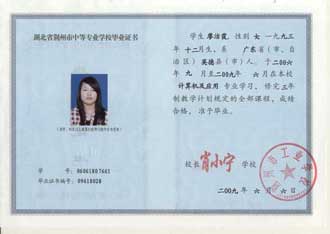 湖北省荆州市中等专业学校毕业证书
学 号：06061807661
毕业证书编号：09618028
学生 廖洁霞，性别 女，一九九三
年 十二月生，系 广东省（市、自
治区）英德县（市）人。于 二〇〇六
年 九 月至二〇〇九年 六月在本校
计算机及应用 专业学习，修完三年
制教学计划规定的全部课程，成绩
合格，准予毕业。
校长 肖小宁 学校
二〇〇九年 六 月 六 日